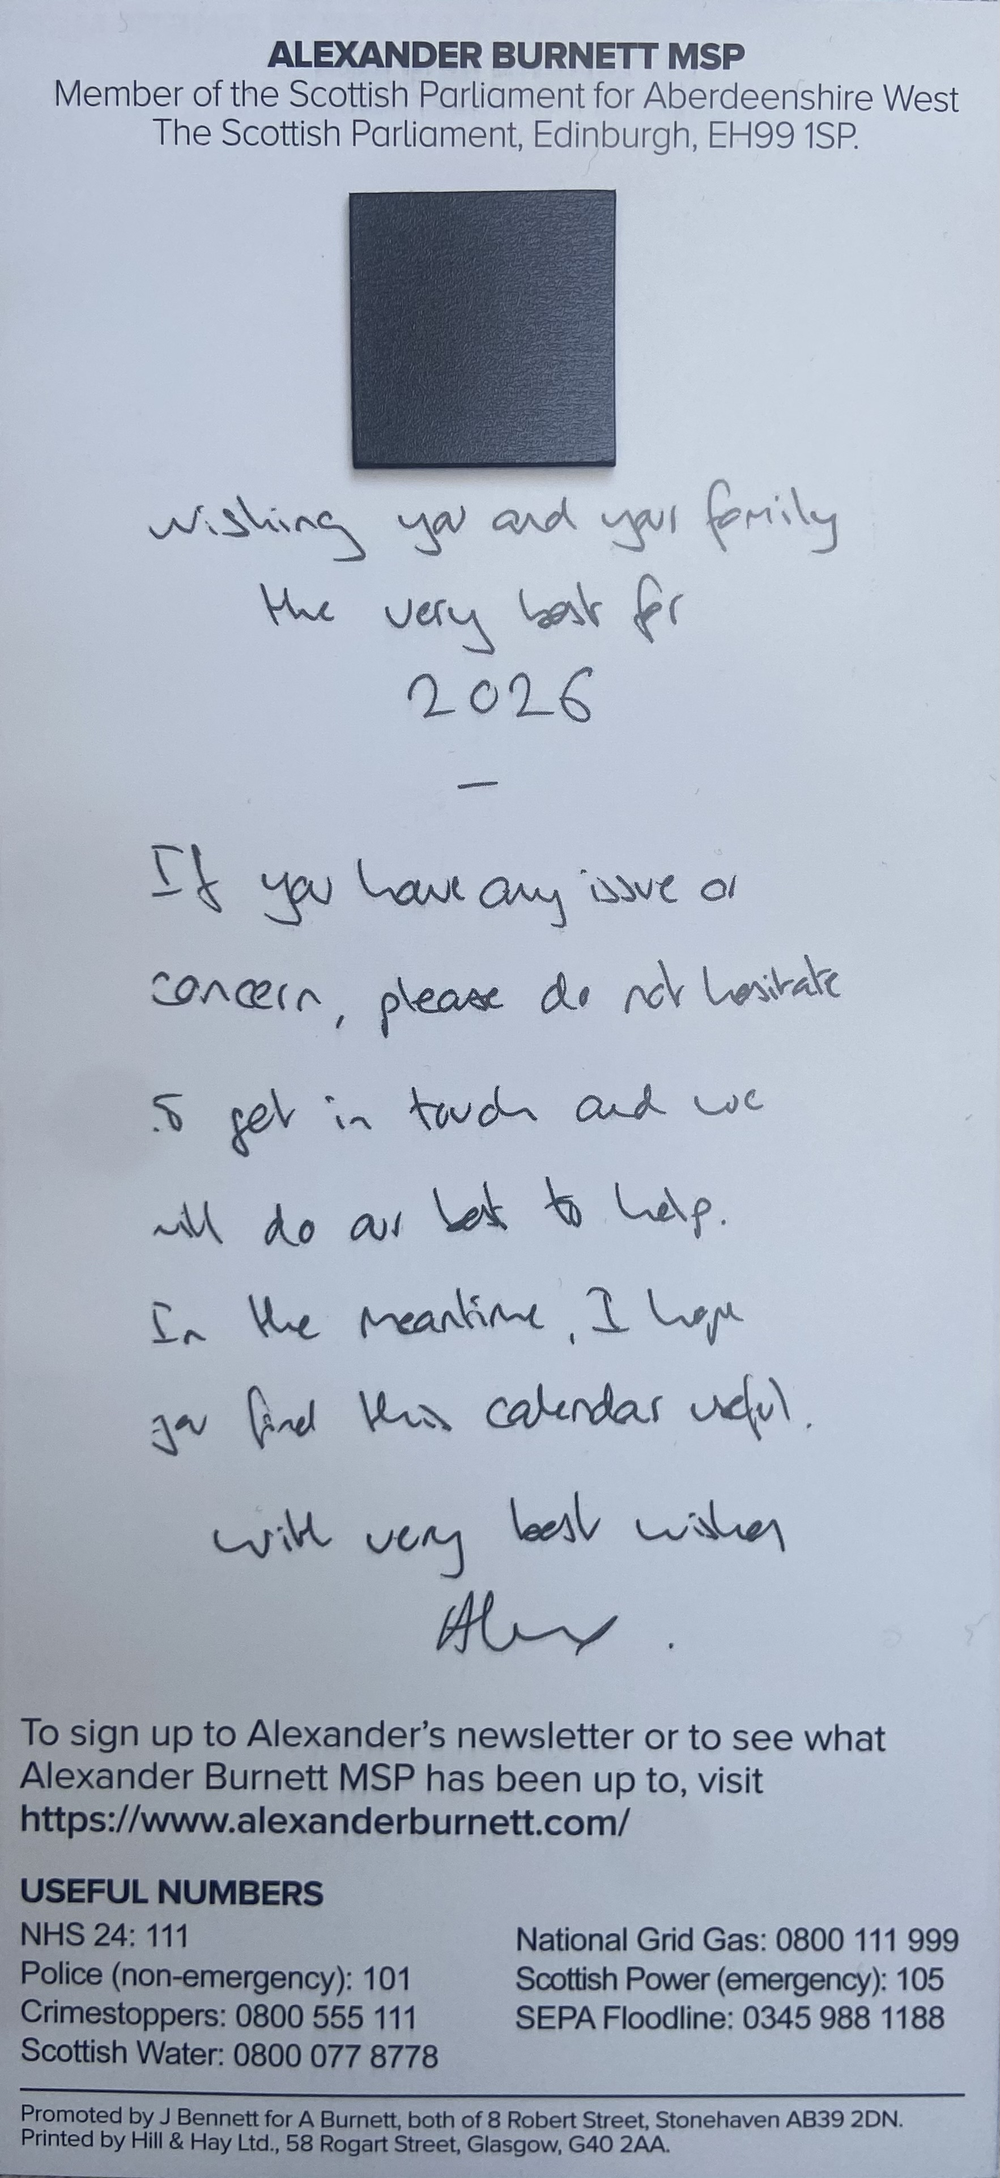 ALEXANDER BURNETT MSP
Member of the Scottish Parliament for Aberdeenshire West
The Scottish Parliament, Edinburgh, EH99 1SP.
Wishing you and your family
the very best for
2026
—
If you have any issue or
concern, please do not hesitate
to get in touch and we
will do our best to help.
In the meantime, I hope
you find this calendar useful.
With very best wishes
Alex
To sign up to Alexander's newsletter or to see what
Alexander Burnett MSP has been up to, visit
https://www.alexanderburnett.com/
USEFUL NUMBERS
NHS 24: 111
Police (non-emergency): 101
Crimestoppers: 0800 555 111
Scottish Water: 0800 077 8778
National Grid Gas: 0800 111 999
Scottish Power (emergency): 105
SEPA Floodline: 0345 988 1188
Promoted by J Bennett for A Burnett, both of 8 Robert Street, Stonehaven AB39 2DN.
Printed by Hill & Hay Ltd., 58 Rogart Street, Glasgow, G40 2AA.